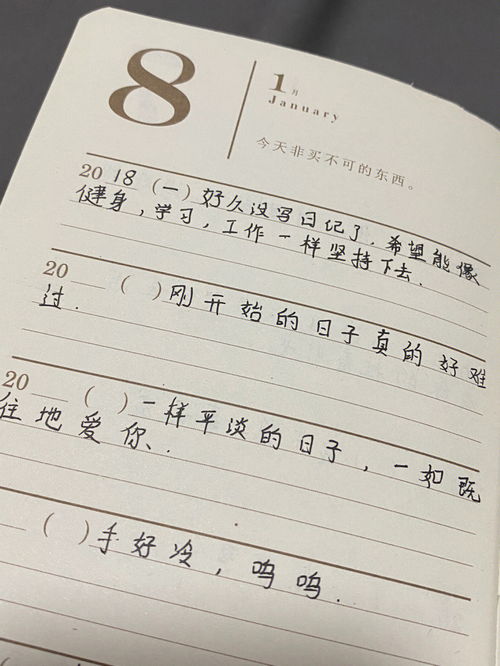 8
1月
January
今天非买不可的东西。
2018(一)好久没写日记了.希望能像
健身,学习,工作一样坚持下去.
20 ( )刚开始的日子真的好难
过.
20 ( )一样平淡的日子,一如既
往地爱你.
( )手好冷,呜呜.